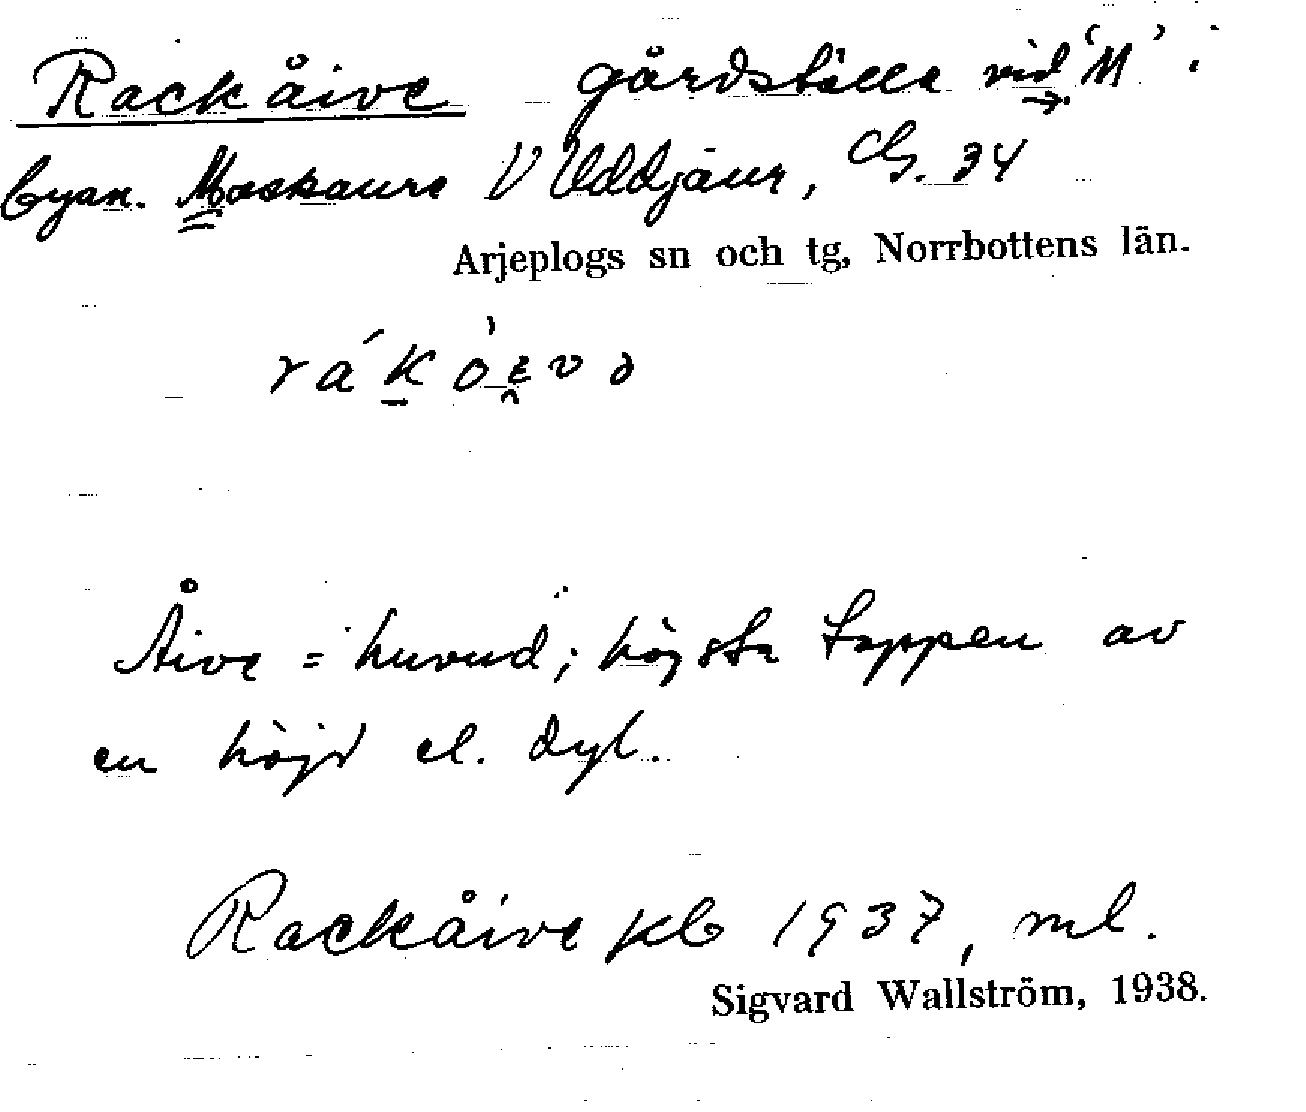 Rackåive gårdställe vid 'M' i
byan. Maskaure V Uddjaur, G. 34
Arjeplogs sn och tg, Norrbottens län.
Åive = huvud; högsta toppen av
en höjd el. dyl.
Rackåive kb 1937, ml.
Sigvard Wallström, 1938.